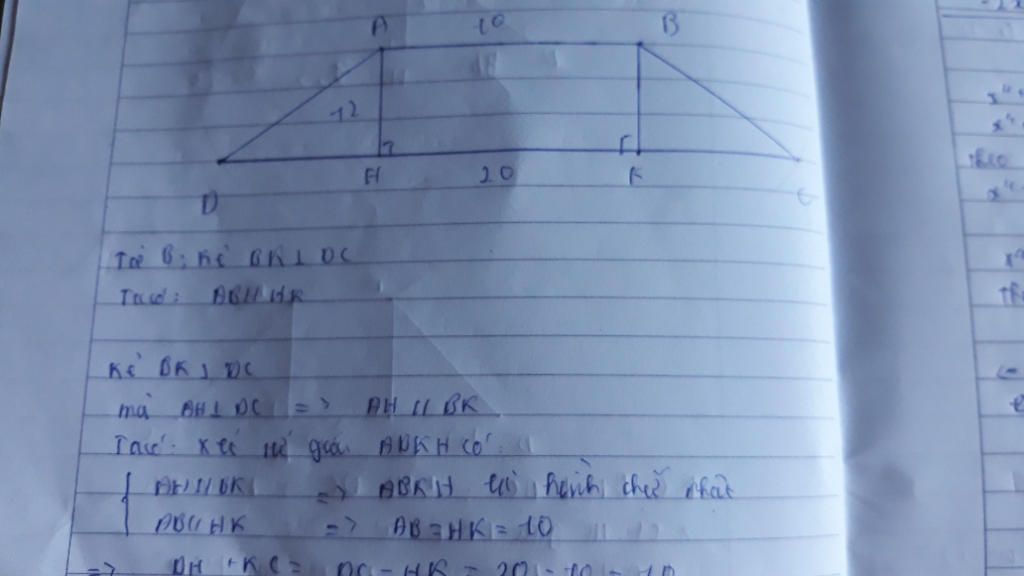 A 10 B
12
H 20 K
D C
Từ B, Kẻ BK ⊥ DC
Ta có: AB // HK
Kẻ BK ⊥ DC
mà AH ⊥ DC => AH // BK
Ta có: Xét tứ giác ABKH có:
AH // BK => ABKH là hình chữ nhật
AB // HK => AB = HK = 10
=> DH + KC = DC - HK = 20 - 10 = 10